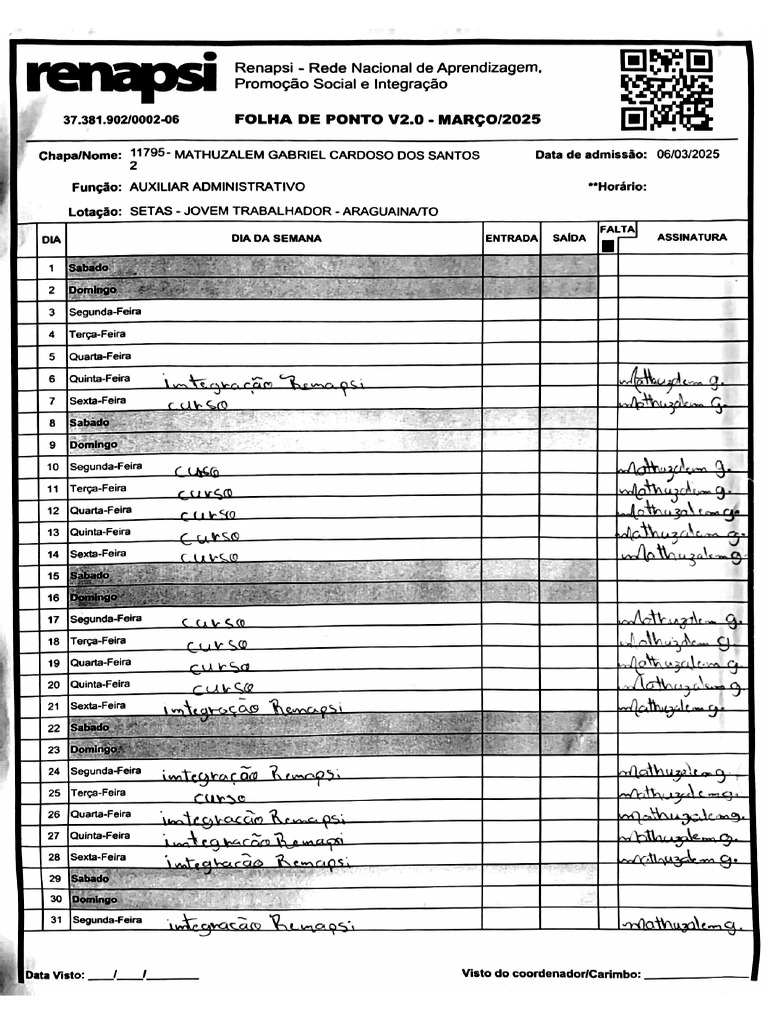 renapsi
Renapsi - Rede Nacional de Aprendizagem,
Promoção Social e Integração
37.381.902/0002-06 FOLHA DE PONTO V2.0 - MARÇO/2025
Chapa/Nome: 11795- MATHUZALEM GABRIEL CARDOSO DOS SANTOS Data de admissão: 06/03/2025
2
Função: AUXILIAR ADMINISTRATIVO **Horário:
Lotação: SETAS - JOVEM TRABALHADOR - ARAGUAINA/TO
DIA DIA DA SEMANA ENTRADA SAÍDA FALTA ASSINATURA
1 Sabado
2 Domingo
3 Segunda-Feira
4 Terça-Feira
5 Quarta-Feira
6 Quinta-Feira integração Remapsi Mathuzalem g.
7 Sexta-Feira curso Mathuzalem G.
8 Sabado
9 Domingo
10 Segunda-Feira cuso Mathuzalem g.
11 Terça-Feira curso Mathuzalem g.
12 Quarta-Feira curso Mathuzalem g.
13 Quinta-Feira curso Mathuzalem g.
14 Sexta-Feira curso Mathuzalem g.
15 Sabado
16 Domingo
17 Segunda-Feira curso Mathuzalem g.
18 Terça-Feira curso Mathuzalem g.
19 Quarta-Feira curso Mathuzalem g.
20 Quinta-Feira curso Mathuzalem g.
21 Sexta-Feira integração Remapsi Mathuzalem g.
22 Sabado
23 Domingo
24 Segunda-Feira integração Remapsi Mathuzalem g.
25 Terça-Feira curso Mathuzalem g.
26 Quarta-Feira integração Remapsi Mathuzalem g.
27 Quinta-Feira integração Remapsi Mathuzalem g.
28 Sexta-Feira integração Remapsi Mathuzalem g.
29 Sabado
30 Domingo
31 Segunda-Feira integração Remapsi Mathuzalem g.
Data Visto: ___/___/______ Visto do coordenador/Carimbo: ____________